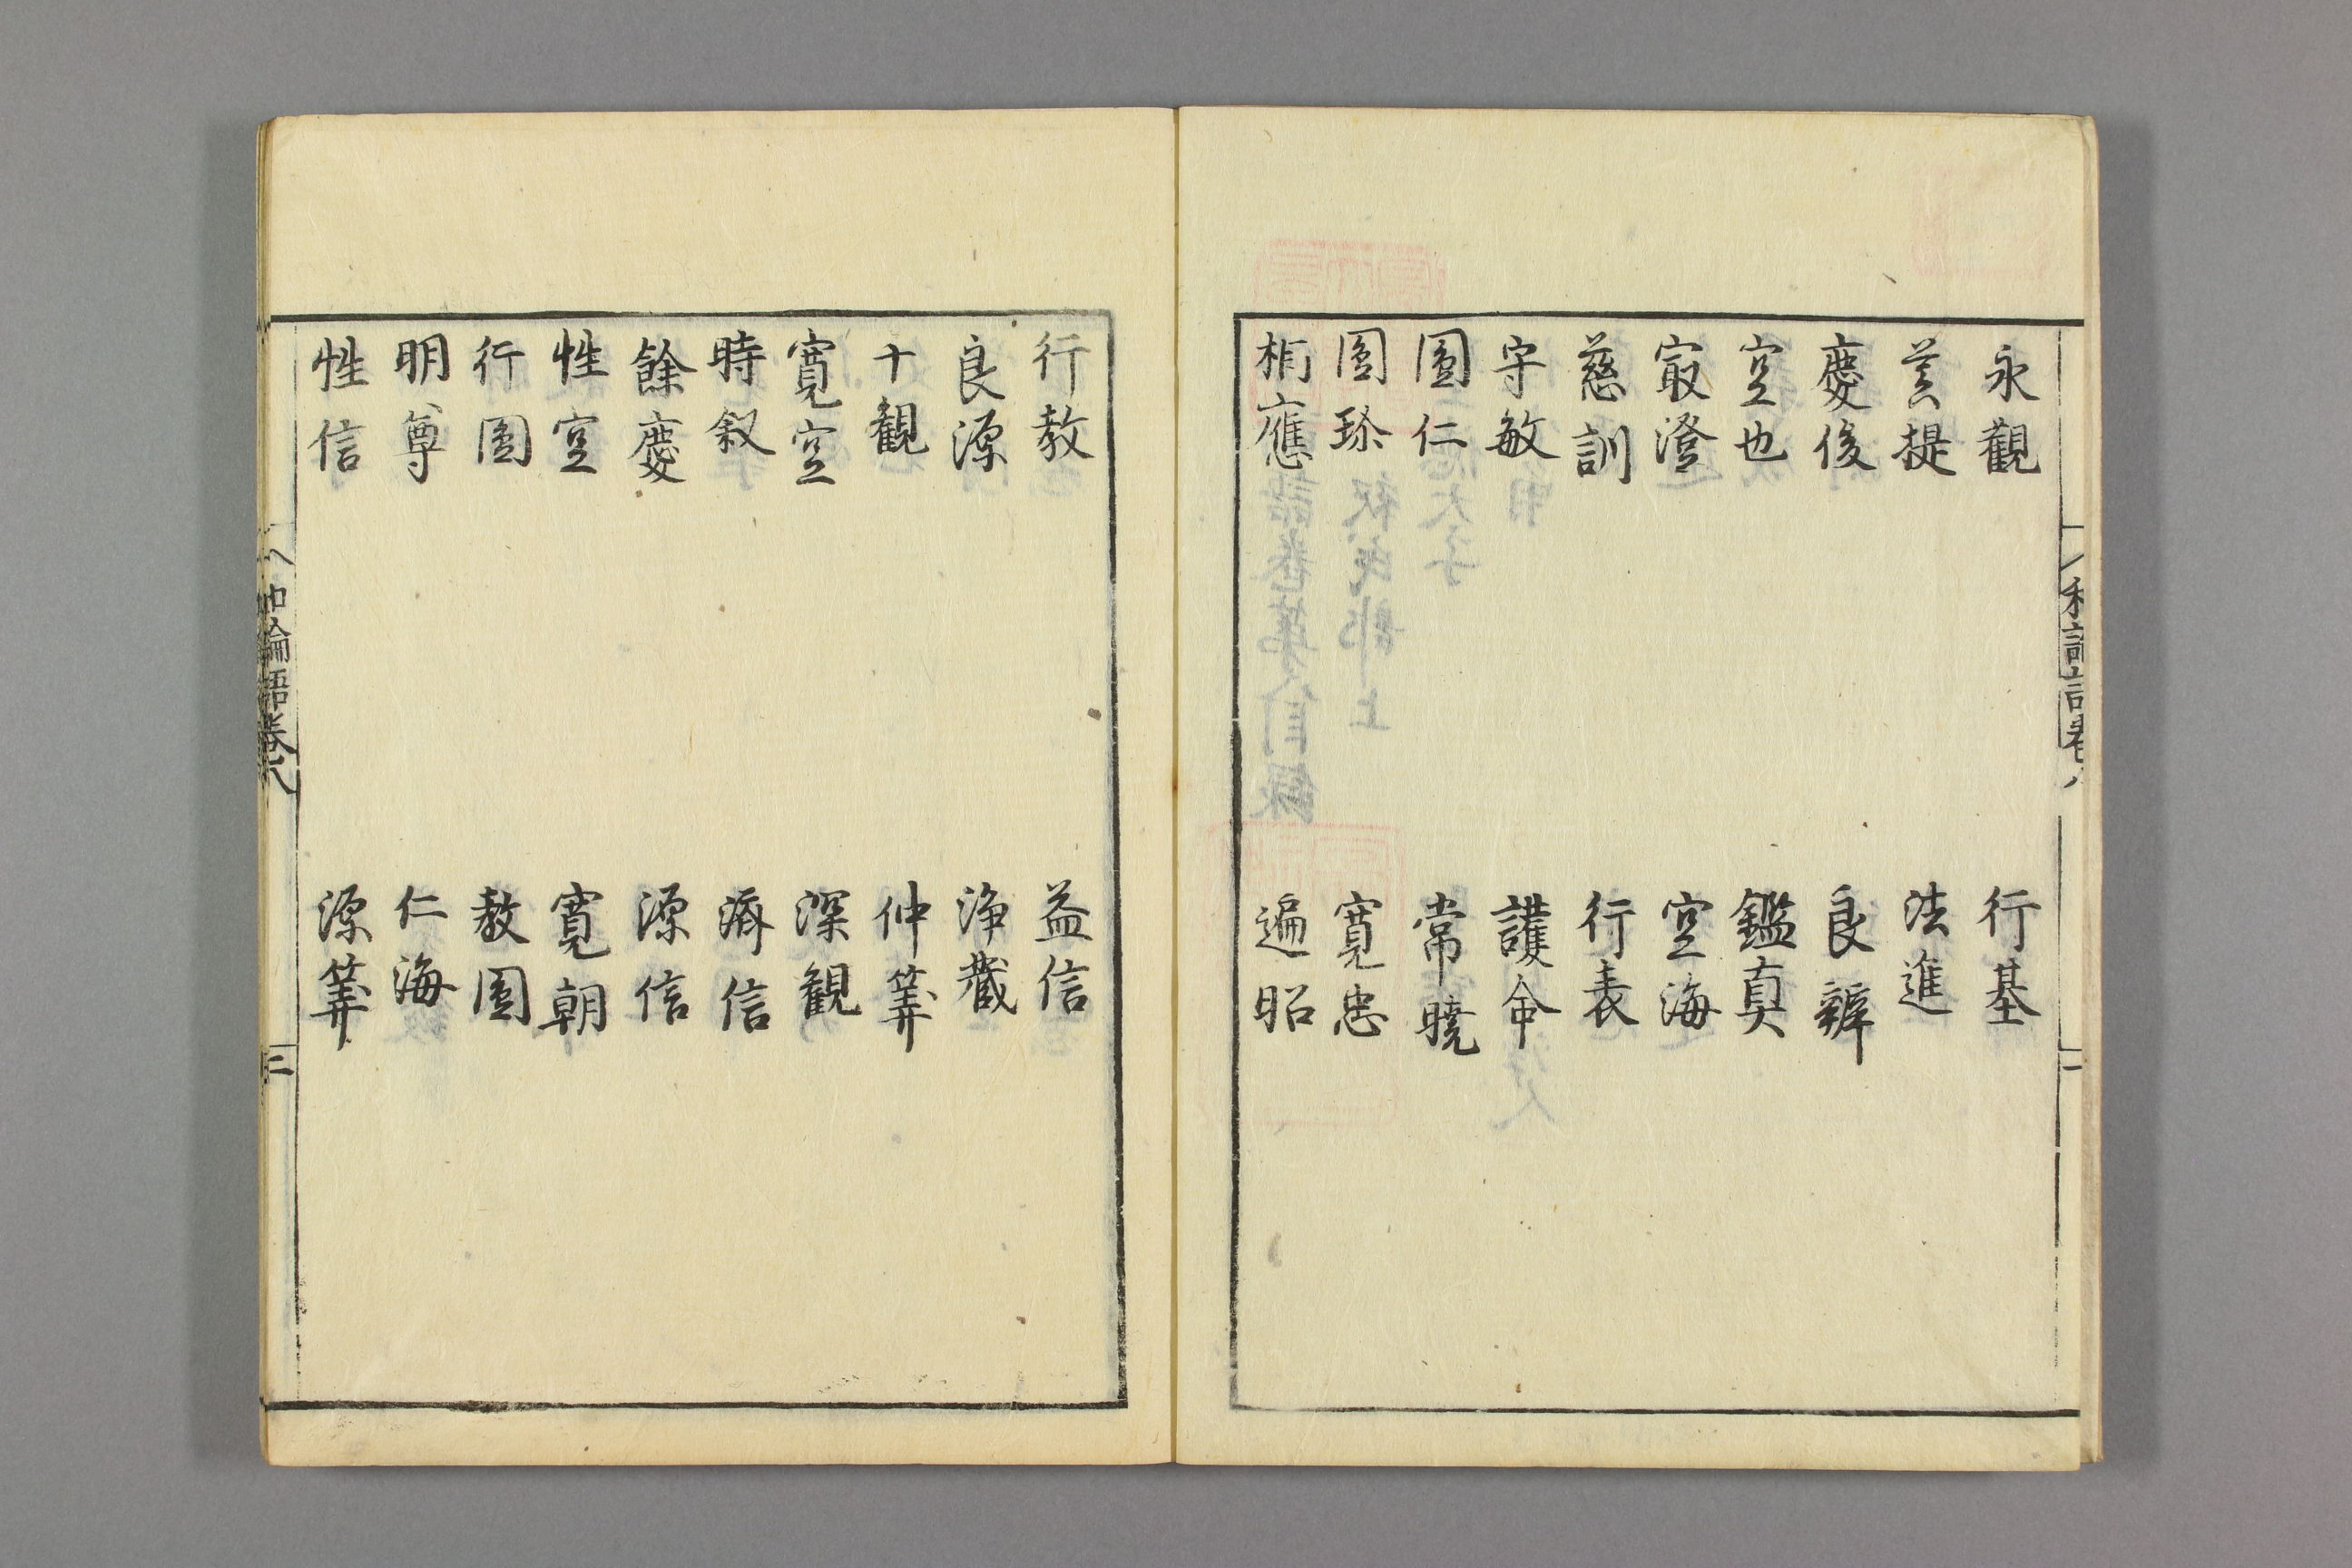 永觀 行基
菩提 法進
慶俊 良辨
空也 鑑真
㝡澄 空海
慈訓 行表
守敏 護命
圓仁 常曉
圓珎 寛忠
相應 遍昭
行教 益信
良源 淨藏
千觀 仲筭
寛空 深觀
時叙 濟信
餘慶 源信
性空 寛朝
行圓 教圓
明尊 仁海
性信 源筭
和論語巻八 三